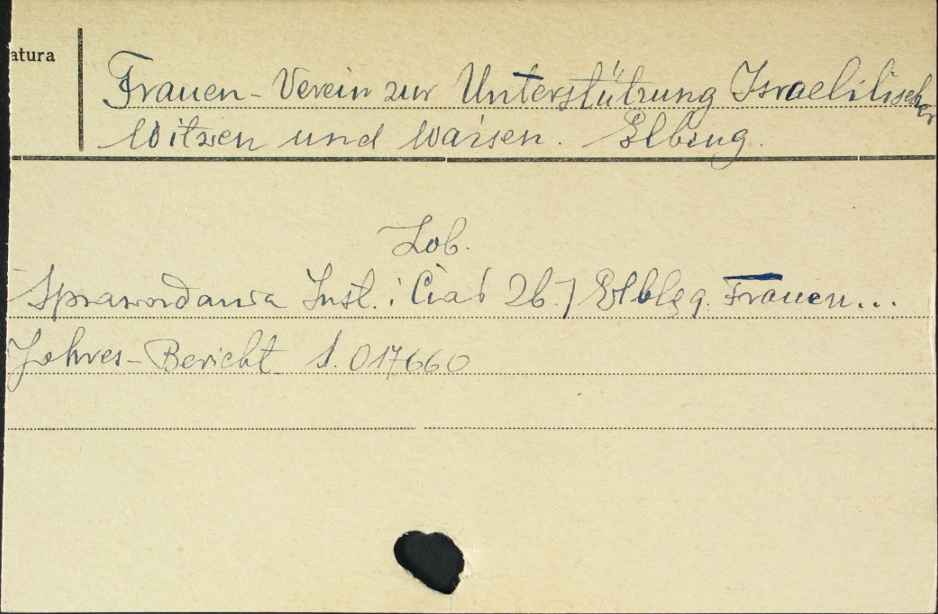 atura
Frauen-Verein zur Unterstützung Israelitischer
Witwen und Waisen. Elbing.
Zob.
Sprawozdania Inst. i Ciał zb.] Elbląg. Frauen...
Jahres-Bericht S. 017660